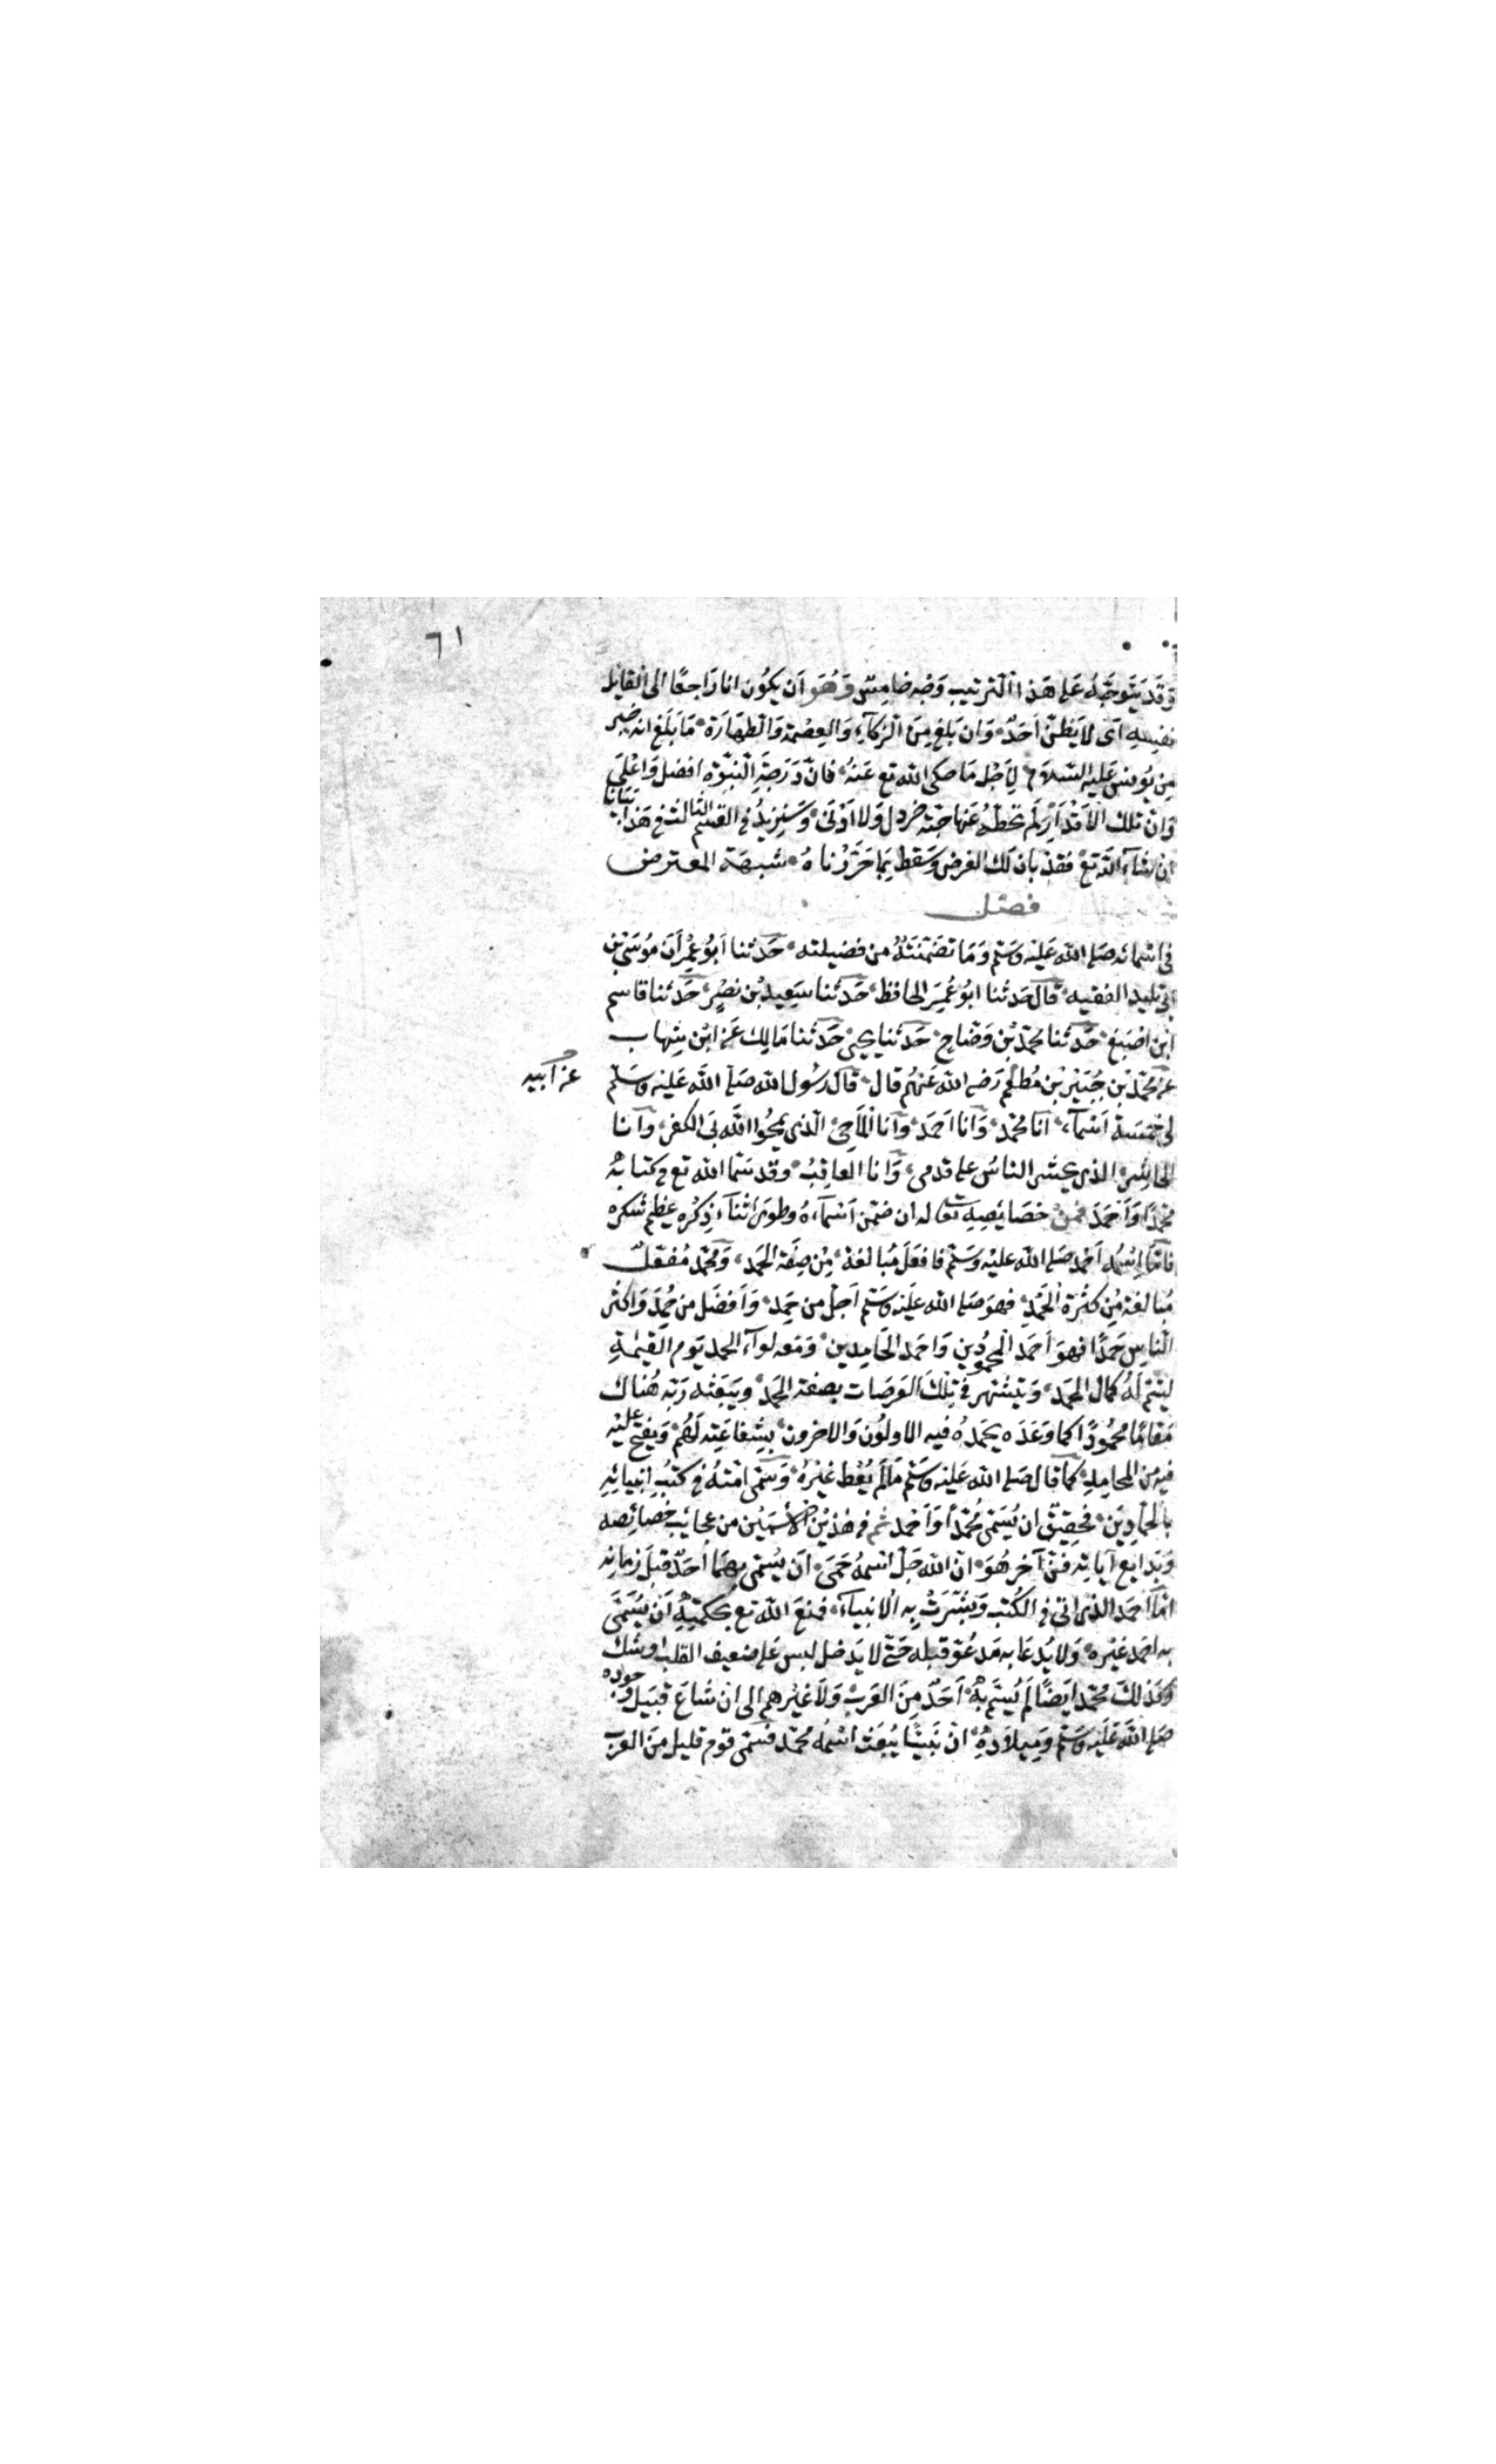 ٦١
وَقَدْ يَتَوَجَّهُ عَلَى هَذَا التَّرْتِيبِ وَجْه خامِسٌ وَهُوَ اَن يَكوُن انا رَاجِعًا الى القائِل
نفْسِهِ اَى لا يَظنّ اَحَدٌ وَان بَلغ مِنَ الزكآءِ وَالعِصْمَة وَالطهَارَة مَا بَلَغ انه خير
مِن يوُنس عَلَيْه السَّلام لِاَجْل مَا حكى الله تع عَنهُ فانّ دَرَجَةَ النبُوّة افضل وَاعْلَى
وَانّ تلك الاَقْدَارَ لَم تحُطّهُ عَنها حَبّة خردل وَلا اَدْنَى وَسَنزيدُ فى القسْم الثالث فى هَذا بَيَانا
ان شاءَ الله تع فقدْ بان لَك الغرض وَسَقط بمَا حَرّرْناهُ شبهَة المعترض
فصْل
فى اسْمائه صَلى الله عَليْه وَسَلم وَمَا تضَمّنَتْهُ من فضِيلته حَدثنا اَبوُ عِمْرَان مُوسَى بْن
اَبى تليد الفقيه قالَ حَدثنا ابوُ عُمَرَ الحافظ حَدّثنا سَعِيد بْن نصْرٍ حَدّثنا قاسم
ابْن اصْبَغ حَدّثنا محمّد بْن وَضّاحٍ حَدثنا يحيى حَدّثنا مَالِك عَن ابْن شِهاب
عن محمّد بْن جُبَيْر بْن مُطْعِم رَضى الله عَنهُم قال قال رَسُول الله صَلى الله عَليْه وسَلم
عن ابيه
لى خمْسَة اَسْمآء انا محمّد وَانا احَمَد وَانا المَاحِىْ الّذى يمحُوا الله بىَ الكفر وَانا
الحاشِر الذى يحشر الناسُ على قدمى وَانا العَاقِبُ وَقد سَمّا الله تع فى كتابِهْ
محَمّدًا وَاَحمَدَ فمِنْ خصَائِصِهِ تعا له ان ضمّن اَسْمآءهُ وطوَى اثنآء ذِكرْه عظيم شكره
فامّا اِسْمُه اَحْمَد صَلى الله عليْه وَسَلم فافعَل مُبالغة مِنْ صِفَة الحَمد وَمحَمّد مُفعّلٌ
مُبالغة مِن كثرَة الحَمْد فهوَ صَلى الله عَليْه وَسَلم اَجلّ من حَمِدَ وَاَفضَل من حُمِدَ وَاكثر
الناسِ حَمْدًا فهوَ اَحمَد المحمُودِين وَاحمَد الحَامِدين وَمَعَه لوآء الحمد يَوم القيٰمَةِ
ليَتمّ لهُ كمال الحمَد وَيتشهر فى تِلكَ العَرَصَات بصِفَة الحمَد وَيَبعَثه رَبه هُناك
مَقامًا محمُودًا كما وَعَدَه يحمَدهُ فيه الاوّلون وَالاخرون بشِفاعَتِه لَهُم وَيفتح عليْه
فيه من المحامِدِ كمَا قال صَلى الله عَليْه وَسَلم مَا لَم يُعْط غيْرهُ وَسَمّى امّتهُ فى كتبُ انبيائهِ
بالحمادِينَ فحقيقٌ ان يُسَمّى محمّدًا وَاَحمد ثم فى هٰذيْن الاسْمَيْن من عجائبِ خصَائِصه
وَبدَايع آياتِه فنّ آخر هُوَ انّ الله جَلّ اسْمهُ حَمَى اَن يُسْمى بهمَا اَحَدٌ قبلَ زمانِه
امّا احمَد الذى اتى فى الكُتبِ وَبشّرَتْ به الانبياءَ فمَنعَ الله تع بحكمَتِهْ اَن يُسَمّى
به احمد غيْره وَلا يُدعَا به مَدْعُوّ قبله حَتّى لا يَدخل لبس عَلى ضَعيف القلب او شك
وَكذلكَ محَمّد ايضًا لم يُسَمّ بهْ اَحَدٌ مِن العَرَب وَلا غيْرهم الى ان شَاعَ قبَيل وجوده
صَلى الله عَليْه وَسَلم وَمِيلادِهْ انّ نَبيّا يُبعَث اسْمُه محمّد فسَمّى قوم قليل مِنَ العَرب